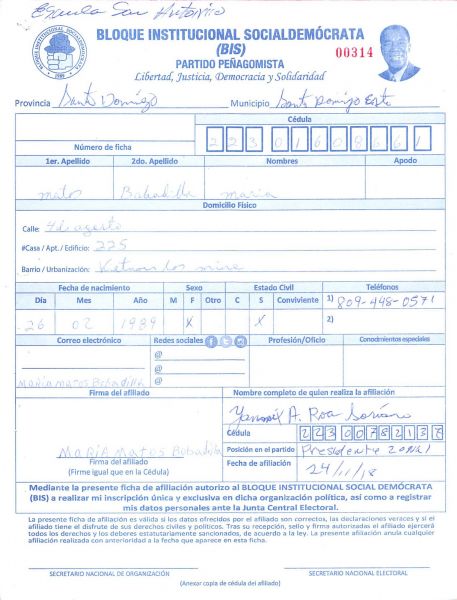 Escuela San Antonio
BLOQUE INSTITUCIONAL SOCIALDEMÓCRATA
(BIS)
PARTIDO PEÑAGOMISTA
00314
Libertad, Justicia, Democracia y Solidaridad
Provincia Santo Domingo Municipio Santo Domingo Este
Número de ficha Cédula
1er. Apellido 2do. Apellido Nombres Apodo
matos Bobadilla maria
Domicilio Físico
Calle: 4 de agosto
#Casa / Apt. / Edificio: 225
Barrio / Urbanización: los mina
Fecha de nacimiento Sexo Estado Civil Teléfonos
Día Mes Año M F Otro C S Conviviente 1) 809-448-0571
26 02 1989 X X 2)
Correo electrónico Redes sociales Profesión/Oficio Conocimientos especiales
@
@
@
Maria Matos Bobadilla
Firma del afiliado Nombre completo de quien realiza la afiliación
A. Roa Soriano
Cédula 22300782138
Maria Matos Bobadilla
Posición en el partido Presidente Zonal
Firma del afiliado
(Firme igual que en la Cédula)
Fecha de afiliación 24/11/18
Mediante la presente ficha de afiliación autorizo al BLOQUE INSTITUCIONAL SOCIAL DEMÓCRATA
(BIS) a realizar mi inscripción única y exclusiva en dicha organización política, así como a registrar
mis datos personales ante la Junta Central Electoral.
La presente ficha de afiliación es válida si los datos ofrecidos por el afiliado son correctos, las declaraciones veraces y si el
afiliado tiene el disfrute de sus derechos civiles y políticos. Tras su recepción, sello y firma autorizadas el afiliado ejercerá
todos los derechos y los deberes estatutariamente sancionados, de acuerdo a la ley. La presente afiliación anula cualquier
afiliación realizada con anterioridad a la fecha que aparece en esta ficha.
SECRETARIO NACIONAL DE ORGANIZACIÓN SECRETARIO NACIONAL ELECTORAL
(Anexar copia de cédula del afiliado)